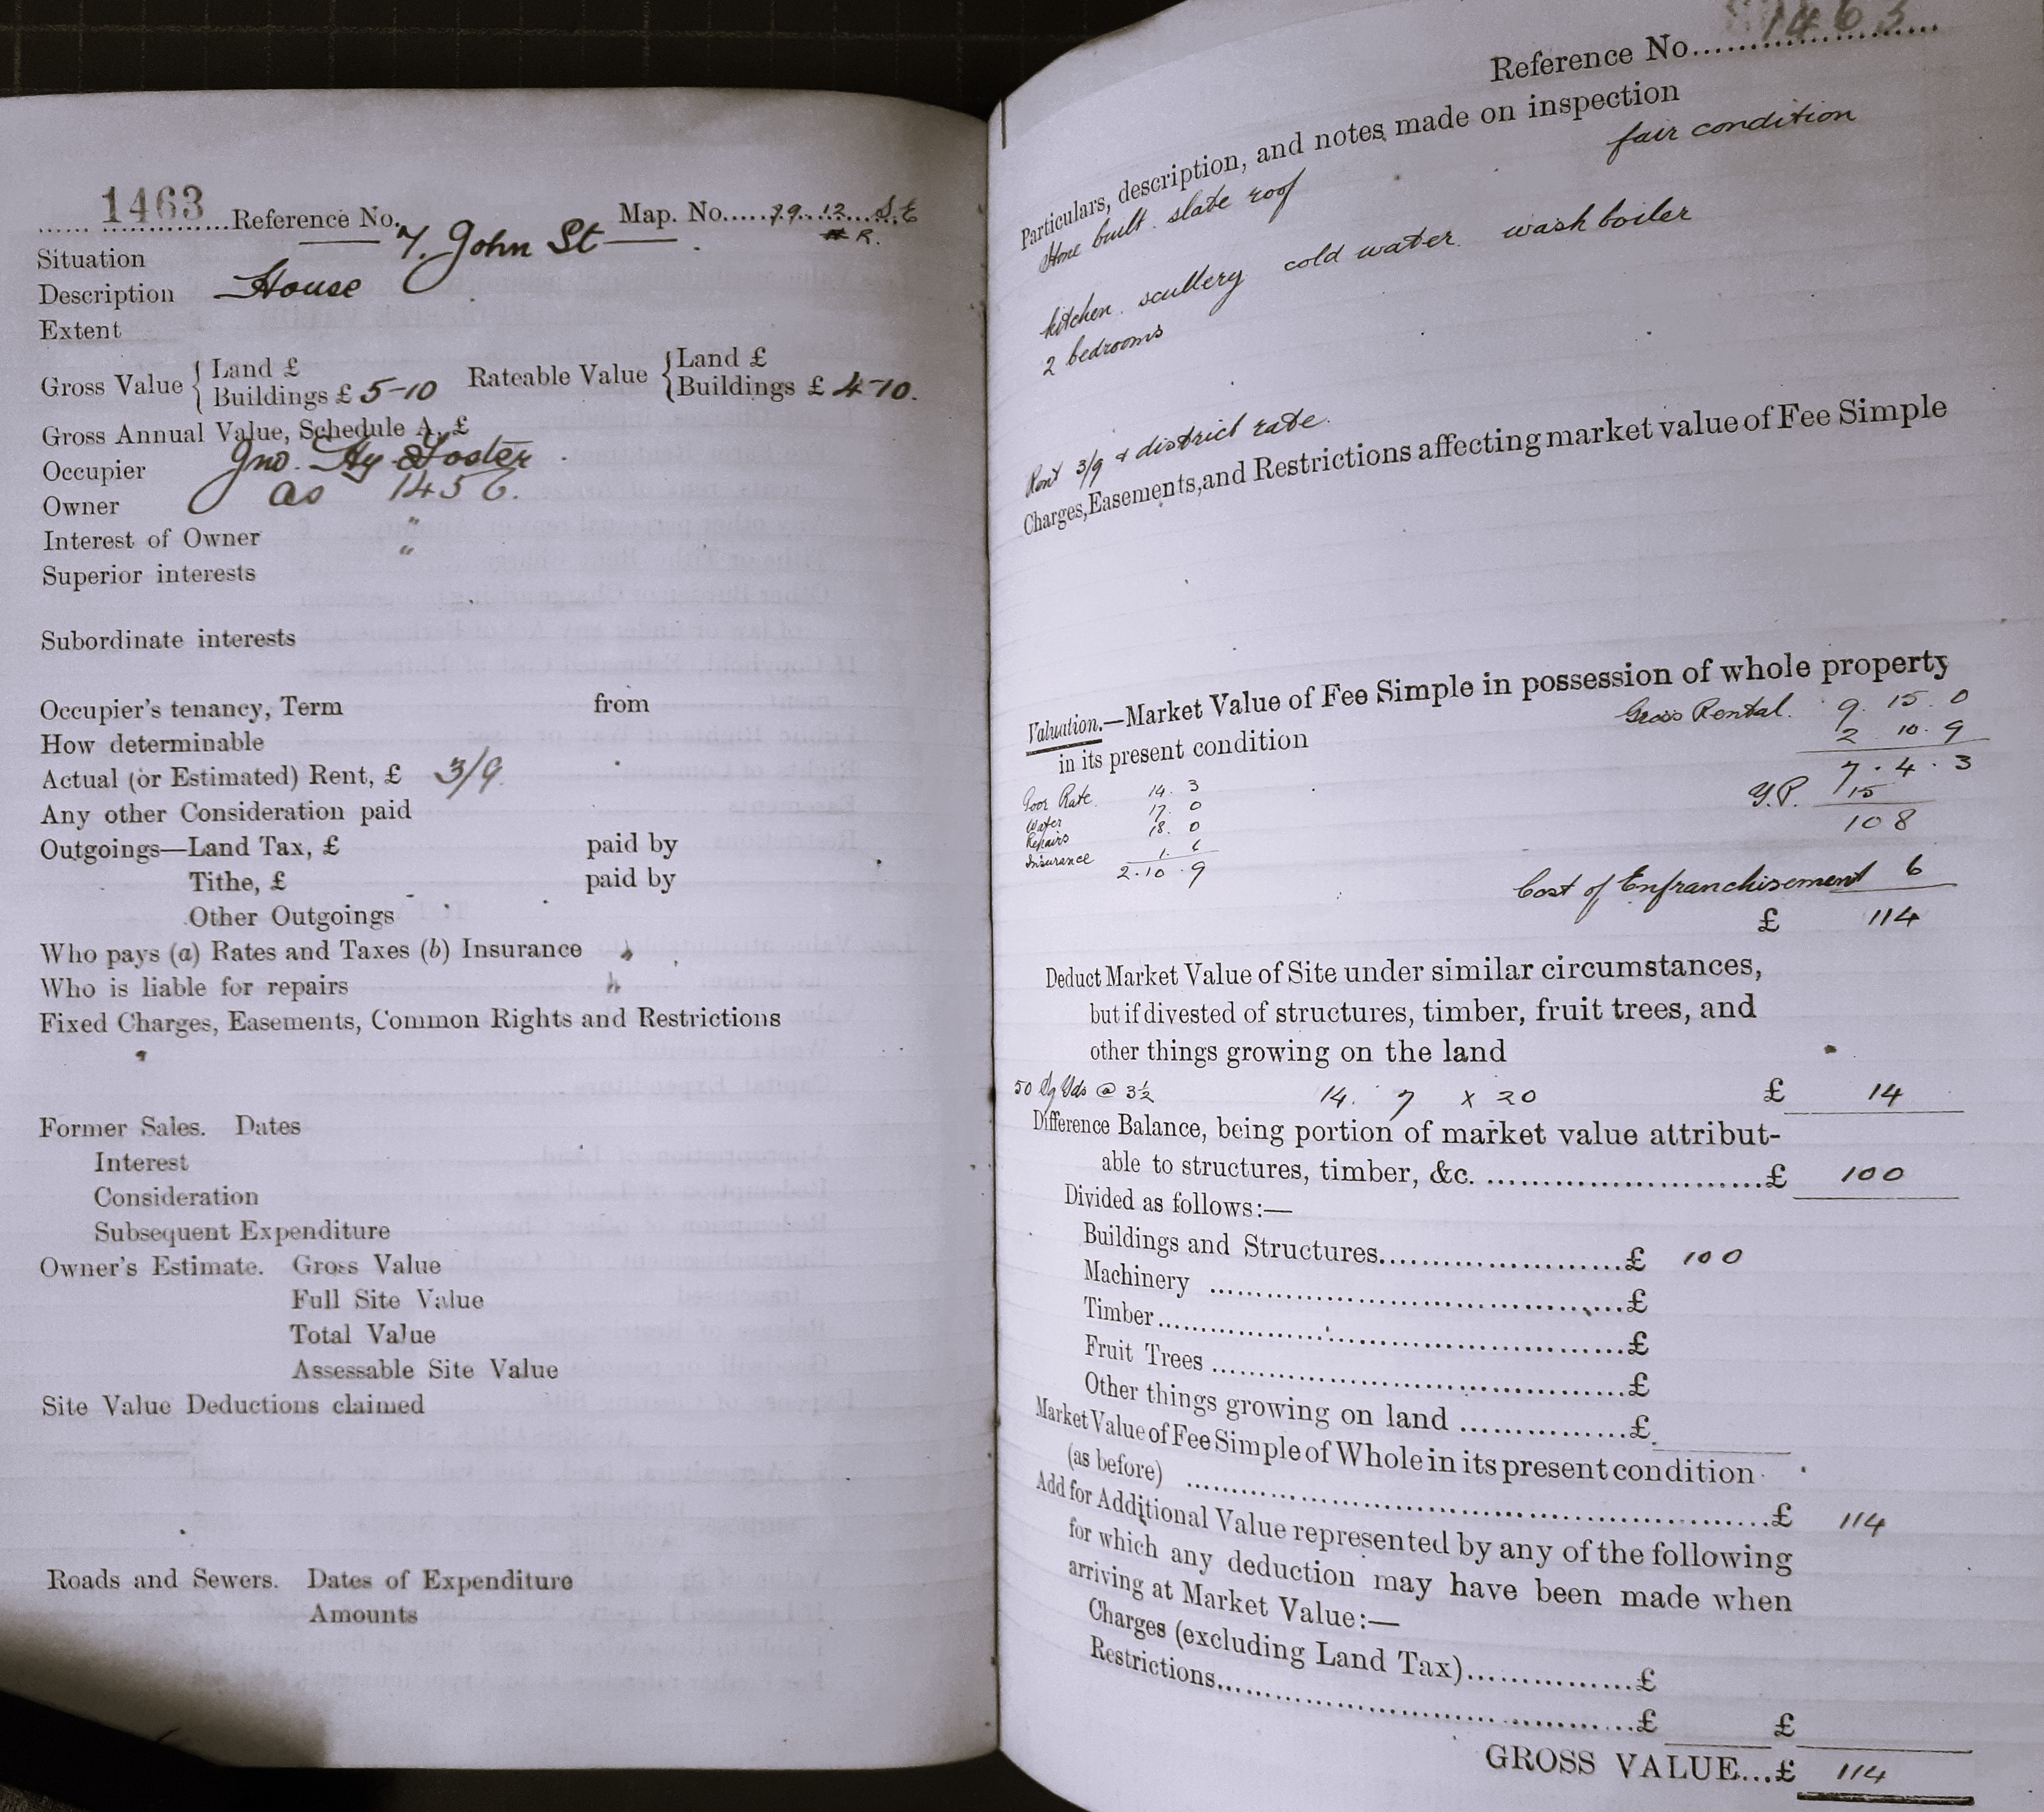 1463 Reference No. Map. No. 79. 12. S.E
R.
Situation 7. John St
Description House
Extent
Gross Value { Land £ Rateable Value { Land £
Buildings £ 5-10 Buildings £ 4-10.
Gross Annual Value, Schedule A, £
Occupier Jno. Hy Foster
Owner as 1456.
Interest of Owner "
Superior interests "
Subordinate interests
Occupier's tenancy, Term from
How determinable
Actual (or Estimated) Rent, £ 3/9
Any other Consideration paid
Outgoings—Land Tax, £ paid by
Tithe, £ paid by
Other Outgoings
Who pays (a) Rates and Taxes (b) Insurance
Who is liable for repairs
Fixed Charges, Easements, Common Rights and Restrictions
Former Sales. Dates
Interest
Consideration
Subsequent Expenditure
Owner's Estimate. Gross Value
Full Site Value
Total Value
Assessable Site Value
Site Value Deductions claimed
Roads and Sewers. Dates of Expenditure
Amounts
Reference No. 1463
Particulars, description, and notes made on inspection
Stone built. slate roof fair condition
kitchen. scullery cold water. wash boiler
2 bedrooms
Rent 3/9 & district rate.
Charges, Easements, and Restrictions affecting market value of Fee Simple
Valuation.—Market Value of Fee Simple in possession of whole property
in its present condition Gross Rental. 9. 15. 0
2 10. 9
7. 4. 3
Y.P. 15
108
Poor Rate. 14. 3
Water 17. 0
Repairs 18. 0
Insurance 1. 6
2. 10. 9
Cost of Enfranchisement 6
£ 114
Deduct Market Value of Site under similar circumstances,
but if divested of structures, timber, fruit trees, and
other things growing on the land
50 Sq Yds @ 3½ 14. 7 x 20 £ 14
Difference Balance, being portion of market value attribut-
able to structures, timber, &c. £ 100
Divided as follows:—
Buildings and Structures £ 100
Machinery £
Timber £
Fruit Trees £
Other things growing on land £
Market Value of Fee Simple of Whole in its present condition
(as before) £ 114
Add for Additional Value represented by any of the following
for which any deduction may have been made when
arriving at Market Value:—
Charges (excluding Land Tax) £
Restrictions £ £
GROSS VALUE...£ 114